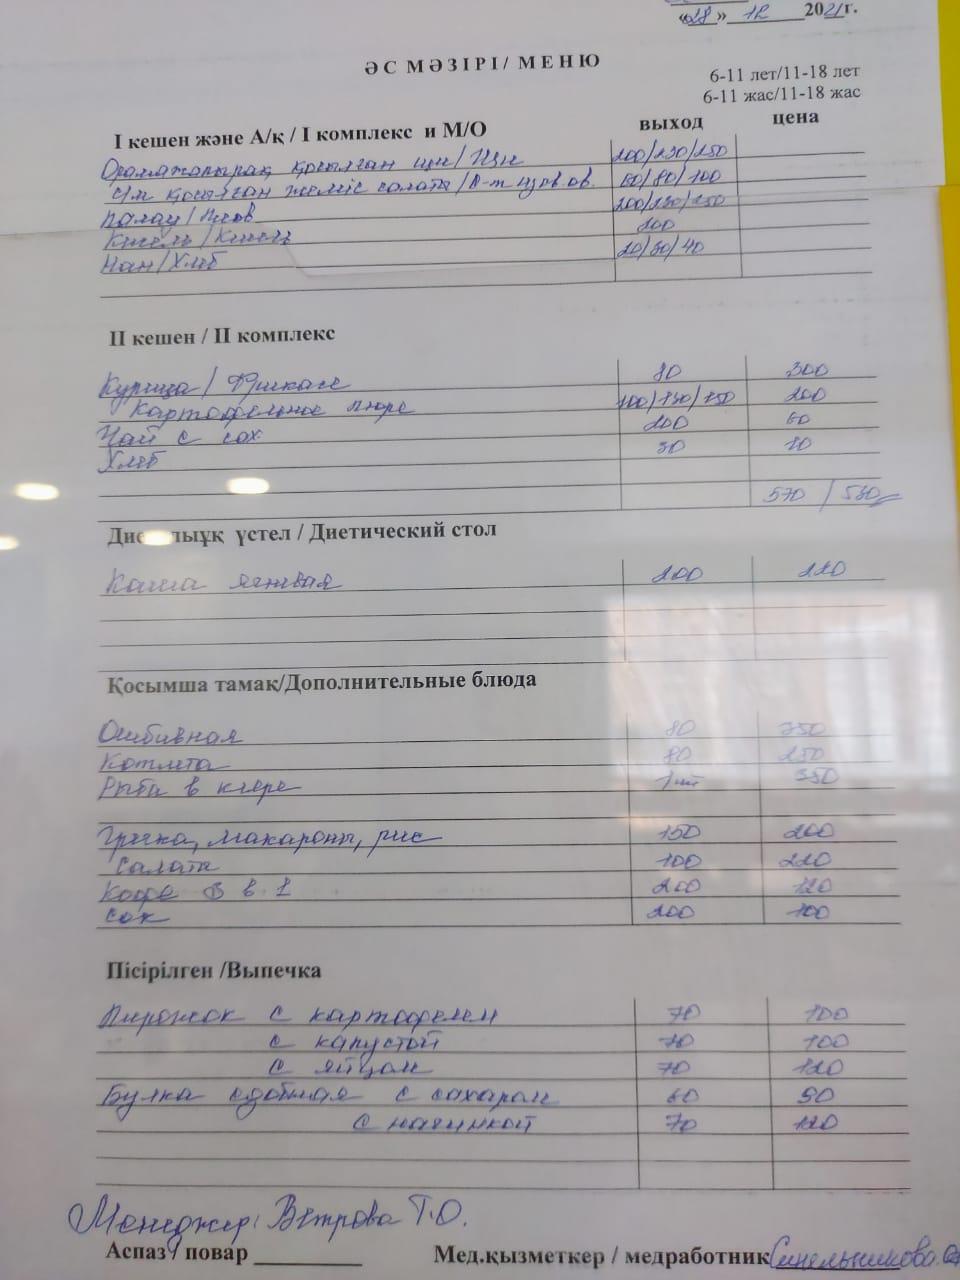 «28» 12 2021г.
ӘС МӘЗІРІ/ МЕНЮ
6-11 лет/11-18 лет
6-11 жас/11-18 жас
І кешен және А/қ / І комплекс и М/О выход цена
қосылған щи/Щи 200/230/250
қосылған жеміс салаты/ 60/80/100
Палау/Плов 200/230/250
Кисель/Кисель 200
Нан/Хлеб 20/30/40
ІІ кешен / ІІ комплекс
Курица/Фрикасе 80 300
Картофельное пюре 100/130/150 200
Чай с сах. 200 60
Хлеб 30 10
570 / 530
үстел / Диетический стол
Каша ячневая 200 220
Қосымша тамақ/Дополнительные блюда
Отбивная 80 350
Котлета 80 250
Рыба в кляре 1 шт 350
Гречка, макароны, рис 150 200
Салаты 100 220
Кофе 3 в 1 200 120
Сок 200 100
Пісірілген /Выпечка
Пирожок с картофелем 70 100
с капустой 70 100
с яйцом 70 120
Булка сдобная с сахаром 60 90
с начинкой 70 120
Менеджер: Ветрова Т.О.
Аспаз/ повар Мед.қызметкер / медработник Синельникова